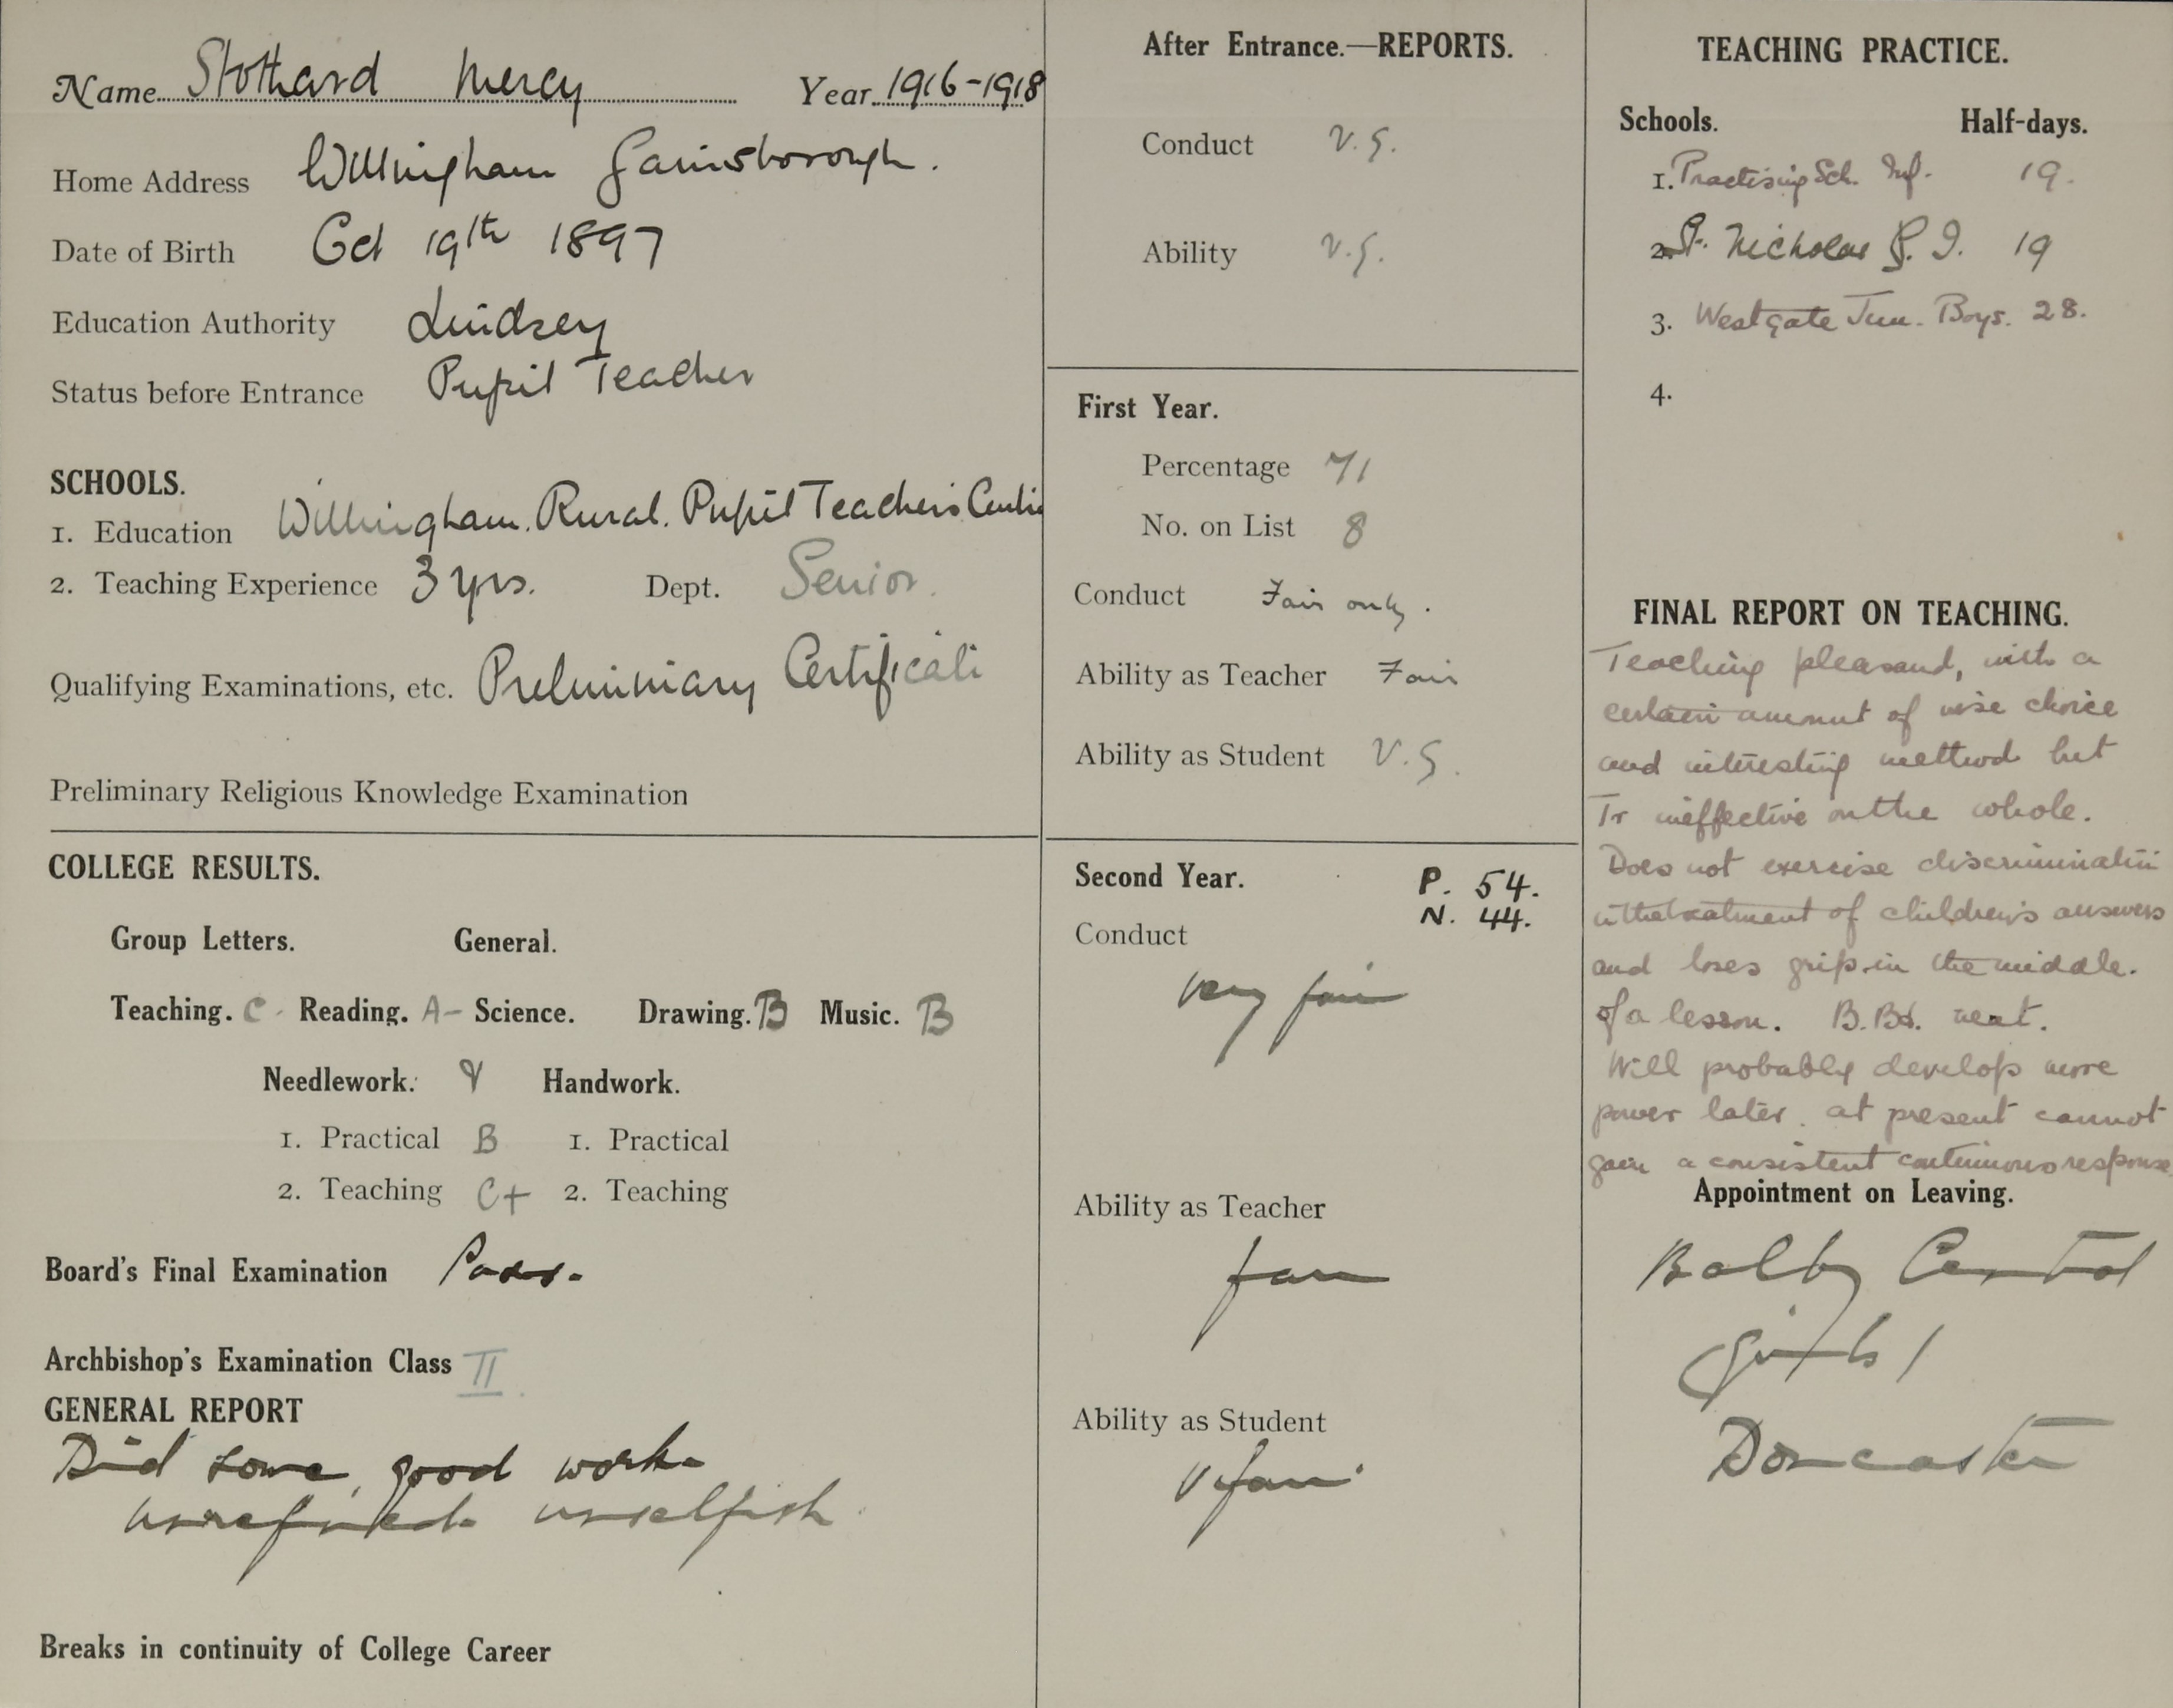 Name Stothard Mercy Year 1916-1918
Home Address Willingham Gainsborough.
Date of Birth Oct 19th 1897
Education Authority Lindsey
Status before Entrance Pupil Teacher
SCHOOLS.
1. Education Willingham. Rural. Pupil Teachers Centre
2. Teaching Experience 3 yrs. Dept. Senior.
Qualifying Examinations, etc. Preliminary Certificate
Preliminary Religious Knowledge Examination
COLLEGE RESULTS.
Group Letters. General.
Teaching. C - Reading. A- Science. Drawing. B Music. B
Needlework. Handwork.
1. Practical B 1. Practical
2. Teaching C+ 2. Teaching
Board's Final Examination Pass.
Archbishop's Examination Class II.
GENERAL REPORT
Did some good work.
unrefined unselfish
Breaks in continuity of College Career
After Entrance.—REPORTS.
Conduct V.G.
Ability V.G.
First Year.
Percentage 71
No. on List 8
Conduct Fair only.
Ability as Teacher Fair
Ability as Student V.G.
Second Year. P. 54.
N. 44.
Conduct
Very fair
Ability as Teacher
fair
Ability as Student
V fair
TEACHING PRACTICE.
Schools. Half-days.
1. Practising Sch. Inf. 19.
2. St. Nicholas G. I. 19
3. Westgate Jun. Boys. 28.
4.
FINAL REPORT ON TEACHING.
Teaching pleasant, with a
certain amount of wise choice
and interesting method but
Tr ineffective on the whole.
Does not exercise discrimination
in the treatment of children's answers
and loses grip in the middle.
of a lesson. B.Bd. neat.
Will probably develop more
power later. at present cannot
gain a consistent continuous response
Appointment on Leaving.
Balby Central
Girls'
Doncaster